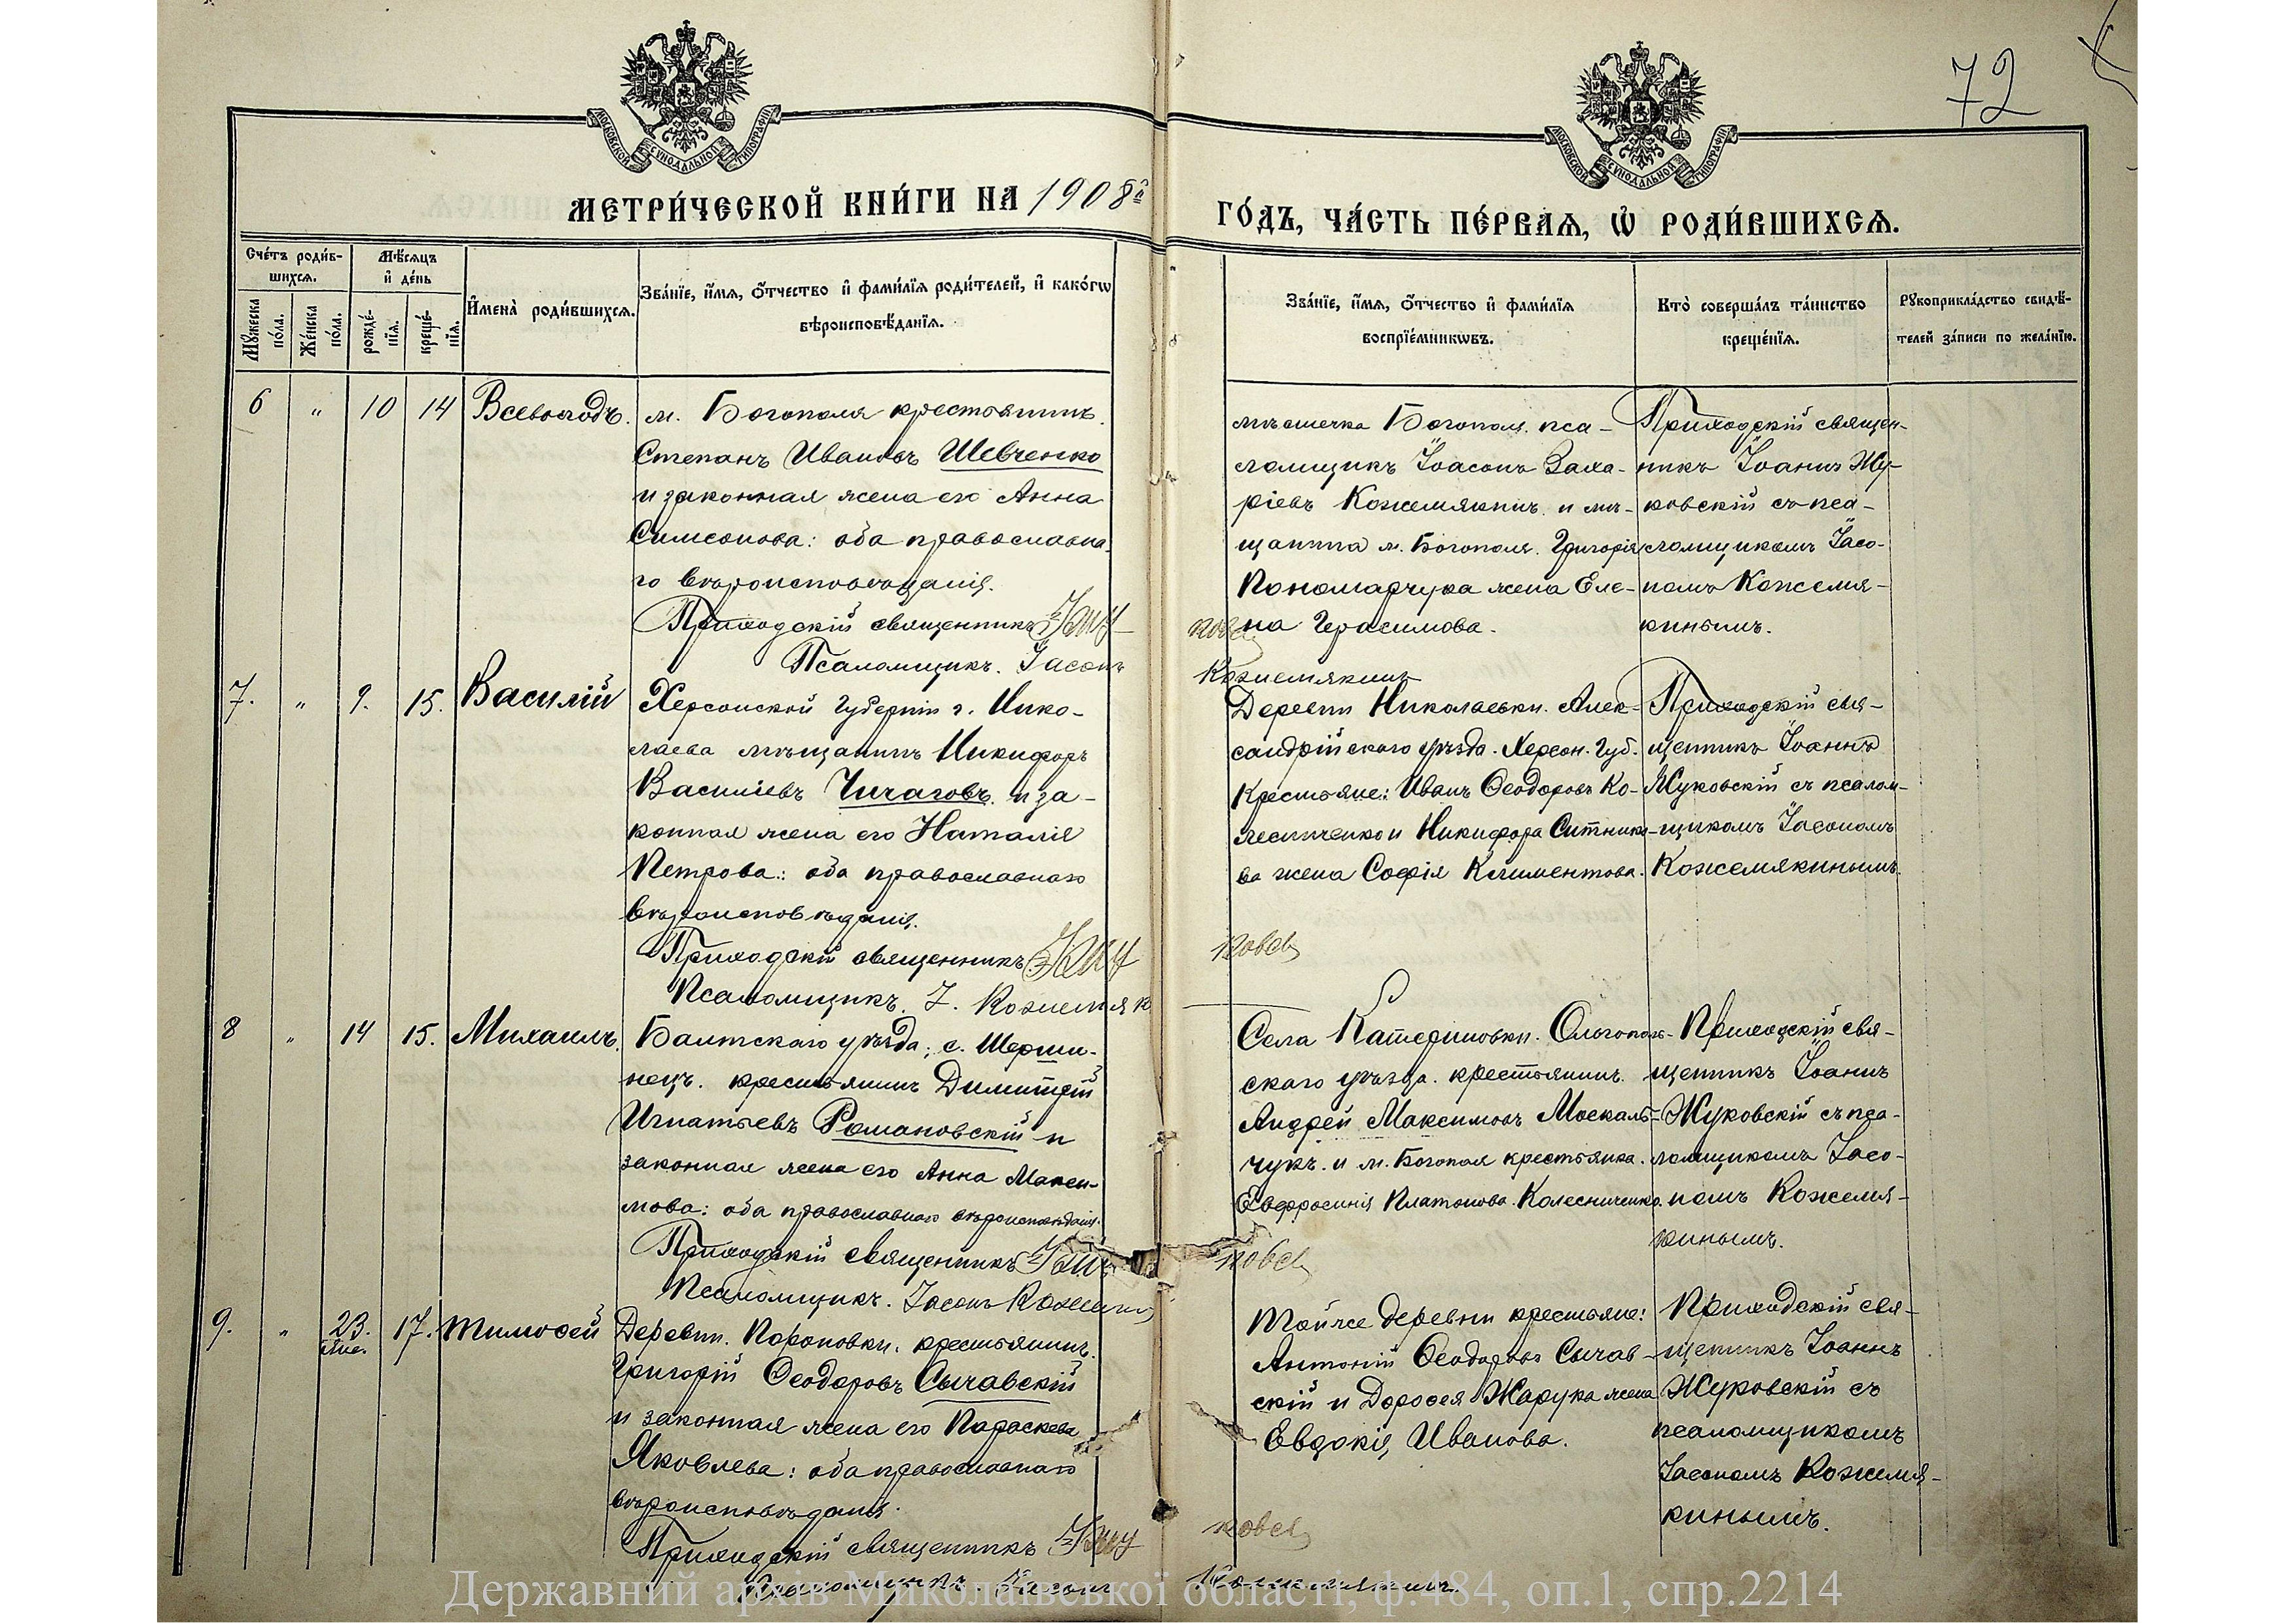 72
МОСКОВСКОЙ СѴНОДАЛЬНОЙ ТИПОГРАФІИ
МОСКОВСКОЙ СѴНОДАЛЬНОЙ ТИПОГРАФІИ
МЕТРИ́ЧЕСКОЙ КНИ́ГИ НА 1908й
ГО́ДЪ, ЧА́СТЬ ПЕ́РВАѦ, Ѡ҆ РОДИ́ВШИХСѦ.
Сче́тъ роди́в-
шихсѧ.
Мꙋ́жеска
по́ла.
Же́нска
по́ла.
Мѣ́сѧцъ
и҆ де́нь
рожде́-
нїѧ.
креще́-
нїѧ.
И҆мена̀ роди́вшихсѧ.
Зва́нїе, и҆́мѧ, ѻ҆́тчество и҆ фами́лїѧ роди́телей, и҆ како́гѡ
вѣроисповѣ́данїѧ.
Зва́нїе, и҆́мѧ, ѻ҆́тчество и҆ фами́лїѧ
воспрїе́мникѡвъ.
Кто̀ соверша́лъ та́инство
креще́нїѧ.
Рꙋкоприкла́дство свидѣ́-
телей за́писи по жела́нїю.
6 " 10 14 Всеволодъ.
м. Богополя крестьянинъ
Степанъ Ивановъ Шевченко
и законная жена его Анна
Симеонова: оба православна-
го вѣроисповѣданія.
Приходскій священникъ Жу
ковс
Псаломщикъ. Іасонъ
Кожемякинъ
мѣстечка Богопол. пса-
ломщикъ Іоасонъ Заха-
ріевъ Кожемякинъ и мѣ-
щанина м. Богополя. Григорія
Пономарчука жена Еле-
на Герасимова.
Приходскій священ-
никъ Іоаннъ Жу-
ковскій съ пса-
ломщикомъ Іасо-
номъ Кожемя-
кинымъ.
7. " 9. 15. Василій
Херсонской губерніи г. Нико-
лаева мѣщанинъ Никифоръ
Василіевъ Чичаговъ. и за-
конная жена его Наталія
Петрова: оба православнаго
вѣроисповѣданія.
Приходскій священникъ Жу
ковс
Псаломщикъ. І. Кожемяк
Деревни Николаевки. Алек-
сандрійскаго уѣзда. Херсон. Губ.
крестьяне: Иванъ Ѳеодоровъ Ко-
лесниченко и Никифора Ситнико-
ва жена Софія Климентова.
Приходскій свя-
щенникъ Іоаннъ
Жуковскій съ псалом-
щикомъ Іасономъ
Кожемякинымъ.
8 " 14 15. Михаилъ.
Балтскаго уѣзда; с. Шерши-
нецъ. крестьянинъ Димитрій
Игнатьевъ Романовскій и
законная жена его Анна Макси-
мова: оба православнаго вѣроисповѣданія.
Приходскій священникъ Жу
ковс
Псаломщикъ. Іасонъ
Села Катериновки. Ольгополь-
скаго уѣзда. крестьянинъ.
Андрей Максимовъ Москаль-
чукъ. и м. Богополя крестьянка.
Евфросинія Платонова Колесниченко.
Приходскій свя-
щенникъ Іоаннъ
Жуковскій съ пса-
ломщикомъ Іасо-
номъ Кожемя-
кинымъ.
9. " 23. 17. Тимоѳей
Деревни. крестьянинъ.
Григорій Ѳеодоровъ Сычавскій
и законная жена его Параскева
Яковлева: оба православнаго
вѣроисповѣданія.
Приходскій священникъ Жу
ковс
Псаломщикъ. Іасонъ
Кожемякинъ.
Той же деревни крестьяне:
Антоній Ѳеодоровъ Сычав-
скій и Дороѳея Жарука жена
Евдокія Иванова.
Приходскій свя-
щенникъ Іоаннъ
Жуковскій съ
псаломщикомъ
Іасономъ Кожемя-
кинымъ.
Державний архів Миколаївської області, ф.484, оп.1, спр.2214